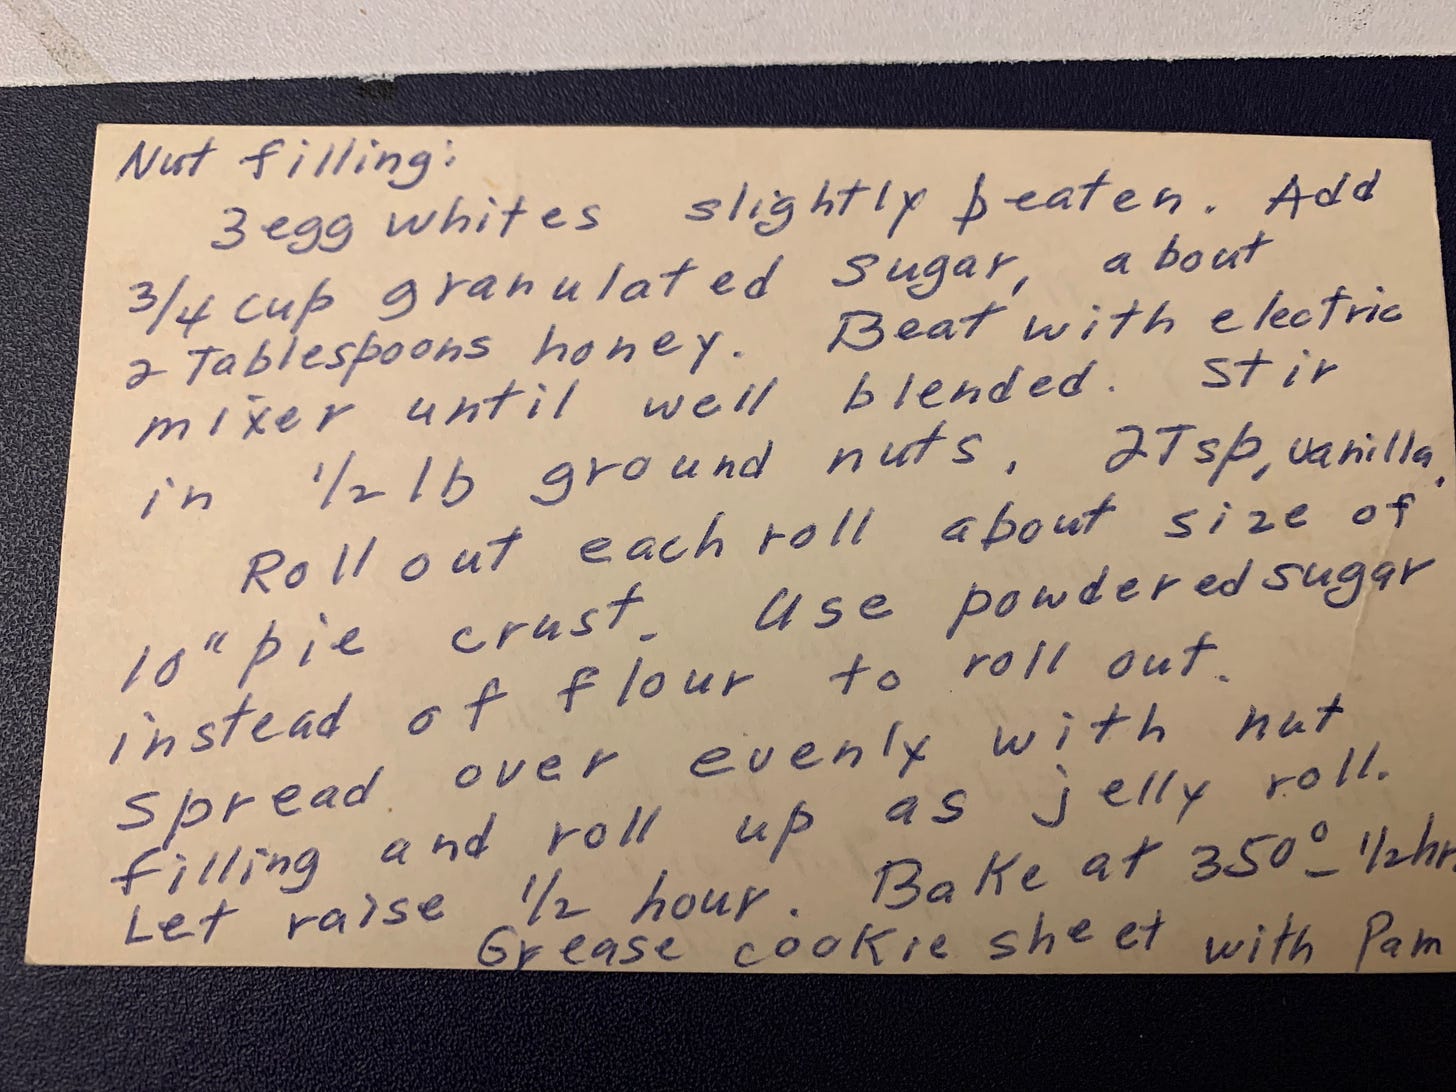 Nut filling:
3 egg whites slightly beaten. Add
3/4 cup granulated sugar, about
2 Tablespoons honey. Beat with electric
mixer until well blended. Stir
in 1/2 lb ground nuts. 2 Tsp, vanilla.
Roll out each roll about size of
10" pie crust. Use powdered sugar
instead of flour to roll out.
Spread over evenly with nut
filling and roll up as jelly roll.
Let raise 1/2 hour. Bake at 350° - 1/2 hr.
Grease cookie sheet with Pam